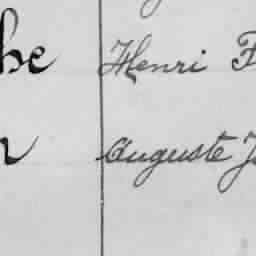 he Henri F
n Auguste J